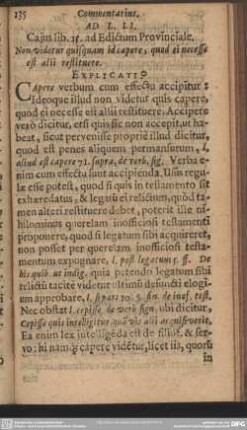 135 Commentarius.
AD L. LI.
Cajus lib. 15. ad Edictum Provinciale.
Non videtur quisquam id capere, quod ei necesse
est alii restituere.
EXPLICATIO
Capere verbum cum effectu accipitur:
Ideoque illud non videtur quis capere,
quod ei necesse est alii restituere. Accipere
vero dicitur, etsi quis sic non accepit ut ha-
beat, sicut pervenisse proprie illud dicitur,
quod est penes aliquem permansurum, l.
aliud est capere 71. supra, de verb. sig. Verba e-
nim cum effectu sunt accipienda. Usus regu-
læ esse potest, quod si quis in testamento sit
exhæredatus, & legatū ei relictum, quod ta-
men alteri restituere debet, poterit ille ni-
hilominus querelam inofficiosi testamenti
proponere, quod si legatum sibi acquireret,
non posset per querelam inofficiosi testa-
mentum expugnare, l. post legatum 5. ff. De
his quib. ut indig. quia petendo legatum sibi
relictū tacite videtur ultimū defuncti elogi-
um approbare, l. si pars 10. §. fin. de inof. test.
Nec obstat l. cepisse, de verb. sign. ubi dicitur,
Cepisse quis intelligitur quāvis alii acquisiverit.
Ea enim lex intelligēda est de filiof. & ser-
vo: hi namq; capere vidētur, licet iis, quorū
in